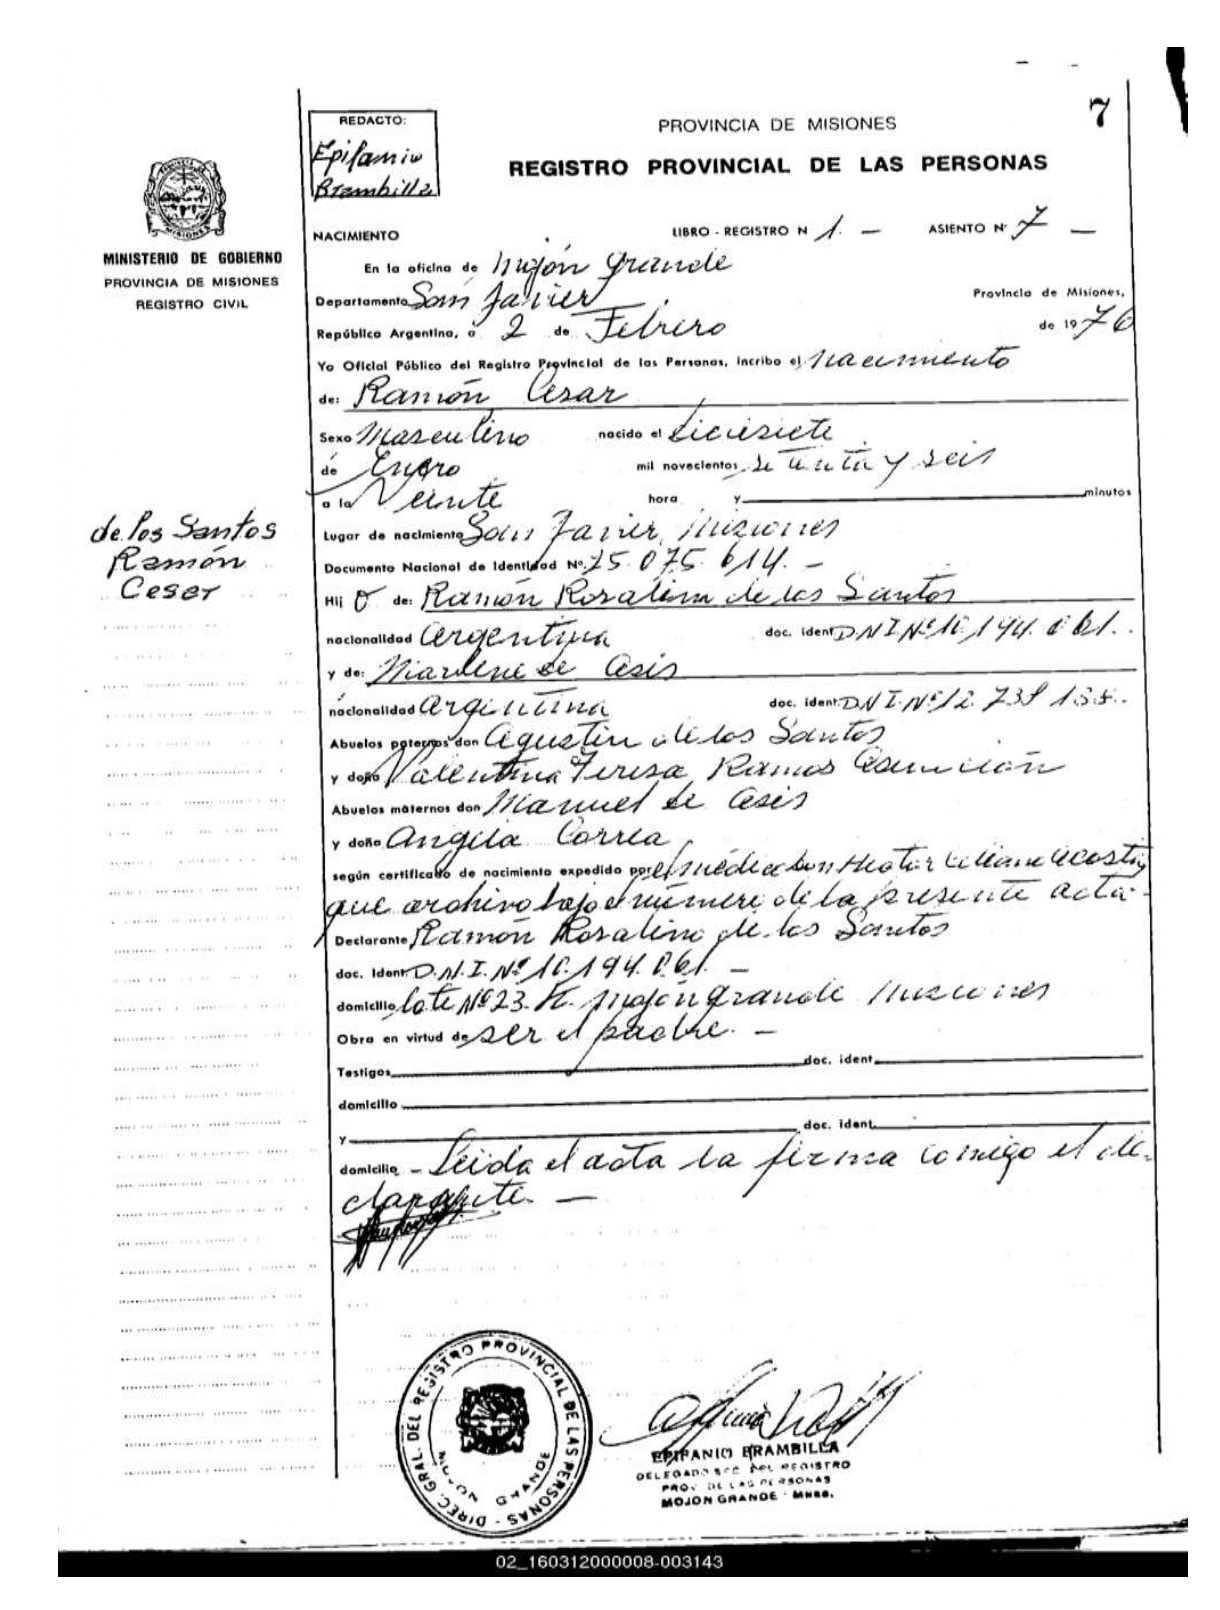 7
REDACTO:
Epifanio
Brambilla
PROVINCIA DE MISIONES
REGISTRO PROVINCIAL DE LAS PERSONAS
MINISTERIO DE GOBIERNO
PROVINCIA DE MISIONES
REGISTRO CIVIL
NACIMIENTO LIBRO - REGISTRO N 1. — ASIENTO N° 7 —
En la oficina de Mojón Grande
Departamento San Javier Provincia de Misiones,
República Argentina, a 2 de Febrero de 1976
Yo Oficial Público del Registro Provincial de las Personas, incribo el nacimiento
de: Ramón Cesar
Sexo Masculino nacido el diecisiete
de Enero mil novecientos setenta y seis
a la Veinte hora y minutos
de los Santos
Ramón
Cesar
Lugar de nacimiento San Javier, Misiones
Documento Nacional de Identidad N° 25.075.614. —
Hij o de: Ramón Rosalino de los Santos
nacionalidad Argentina doc. ident DNI Nº 10.194.061.
y de: Marlene de Asis
nacionalidad argentina doc. ident. DNI. Nº 12.738
Abuelos paternos don Agustin de los Santos
y doña Valentina Teresa Ramos Asunción
Abuelos maternos don Manuel de Asis
y doña Angela Correa
según certificado de nacimiento expedido por el médico don Hector Acosta
que archivo bajo el número de la presente acta.
Declarante Ramón Rosalino de los Santos
doc. Ident. D.N.I. Nº 10.194.061. —
domicilio lote Nº 23. Mojón grande Misiones
Obra en virtud de ser el padre. —
Testigos doc. ident.
domicilio
y doc. ident.
domicilio - Leida el acta la firma comigo el de-
clarante. —
DIREC. GRAL. DEL REGISTRO PROVINCIAL DE LAS PERSONAS
MOJON GRANDE
EPIFANIO BRAMBILLA
DELEGADO SEC DEL REGISTRO
PROV. DE LAS PERSONAS
MOJON GRANDE - MNES.
02_160312000008-003143